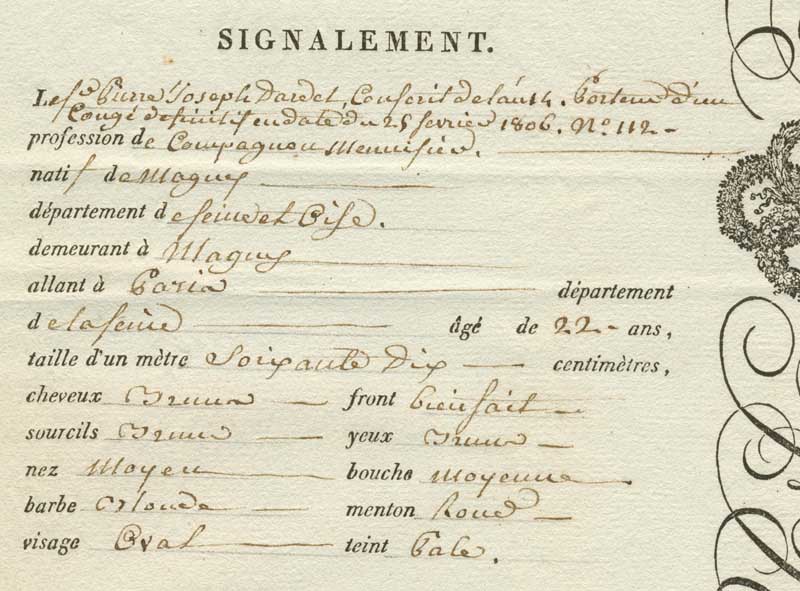 SIGNALEMENT.
Le s.r Pierre Joseph Dardel, Conscrit de l'an 14. Porteur d'un
Congé definitif en date du 25 fevrier 1806. N.o 112 -
profession de Compagnon Menuisier.
natif de Magny
département de Seine et Oise.
demeurant à Magny
allant à Paris département
de la Seine âgé de 22 - ans,
taille d'un mètre Soixante Dix centimètres,
cheveux Bruns front bien fait
sourcils Bruns yeux Bruns
nez Moyen bouche moyenne
barbe Blonde menton Rond
visage Oval teint Pale.